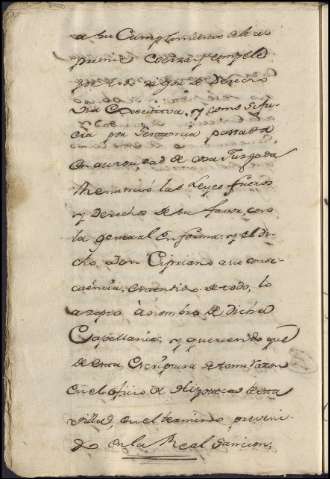 a su Cumplimiento el a
premie Contrato y compela
por todo rigor de Derecho
Via executiva, y como si fue
cia por Sentencia pasada
en autoridad de cosa Juzgada
Renuncio las Leyes fueros
y Derecho de su favor, con
la general en forma; y el di
cho Don Cipriano a su cons
cuencia, enterado de todo, lo
acepto à nombre de dicha
Capellania, y queriendo que
de esta Escriptura se tome razon
en el oficio de Hypotecas de esta
villa, en el termino preveni
do en la Real Sancion,